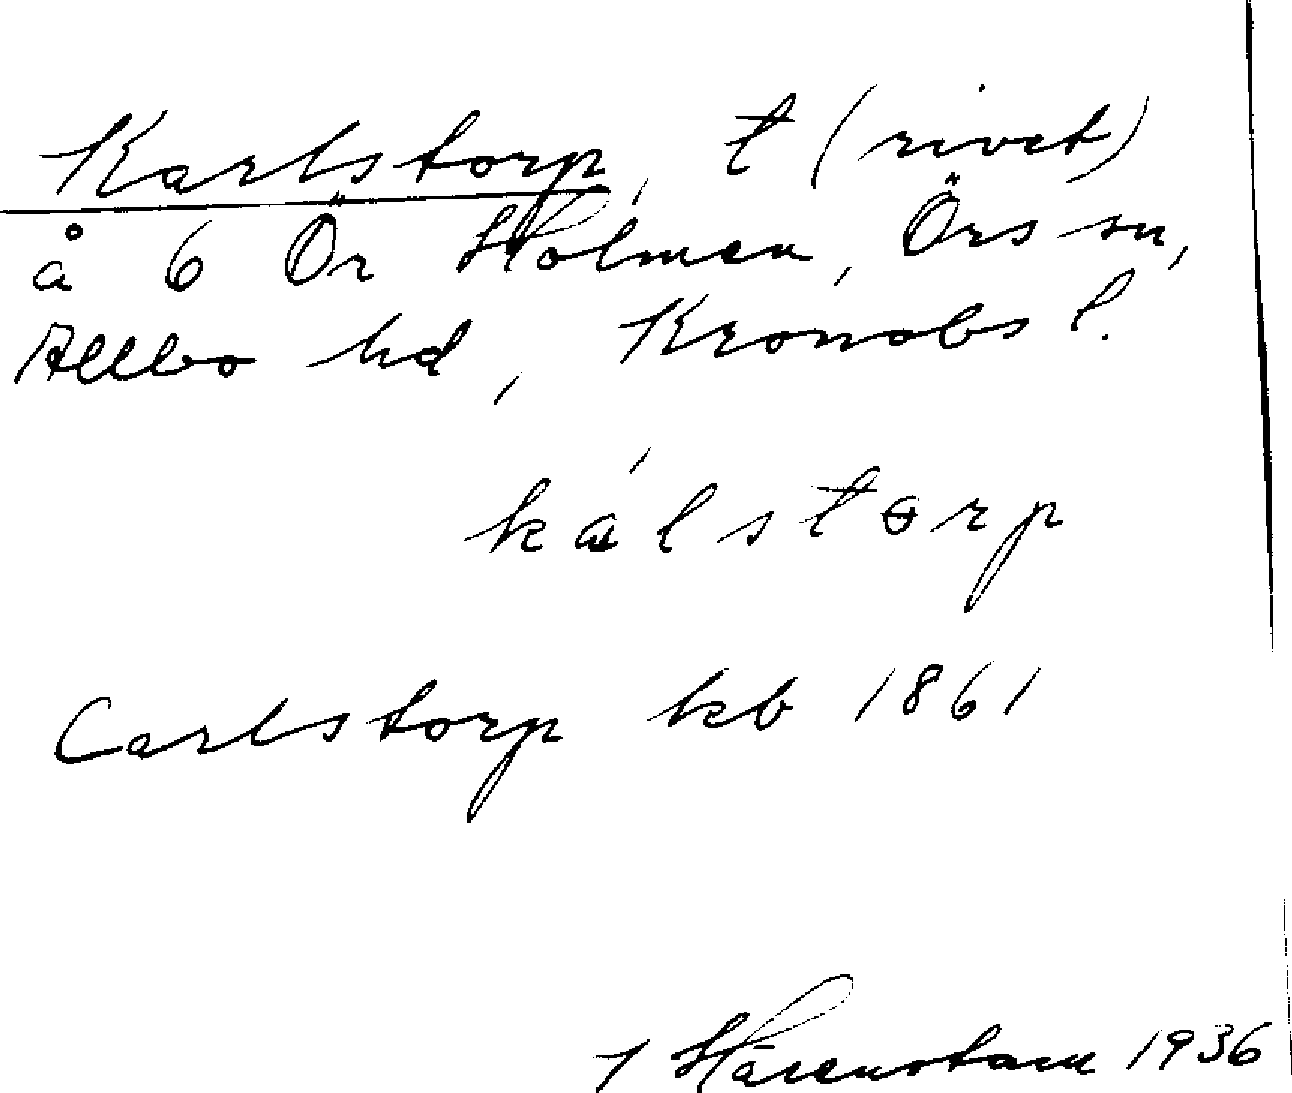 Karlstorp, t (rivet)
å 6 Ör Holmen, Örs sn,
Allbo hd, Kronobs l.
kálstorp
Carlstorp kb 1861
Hårenstam 1936